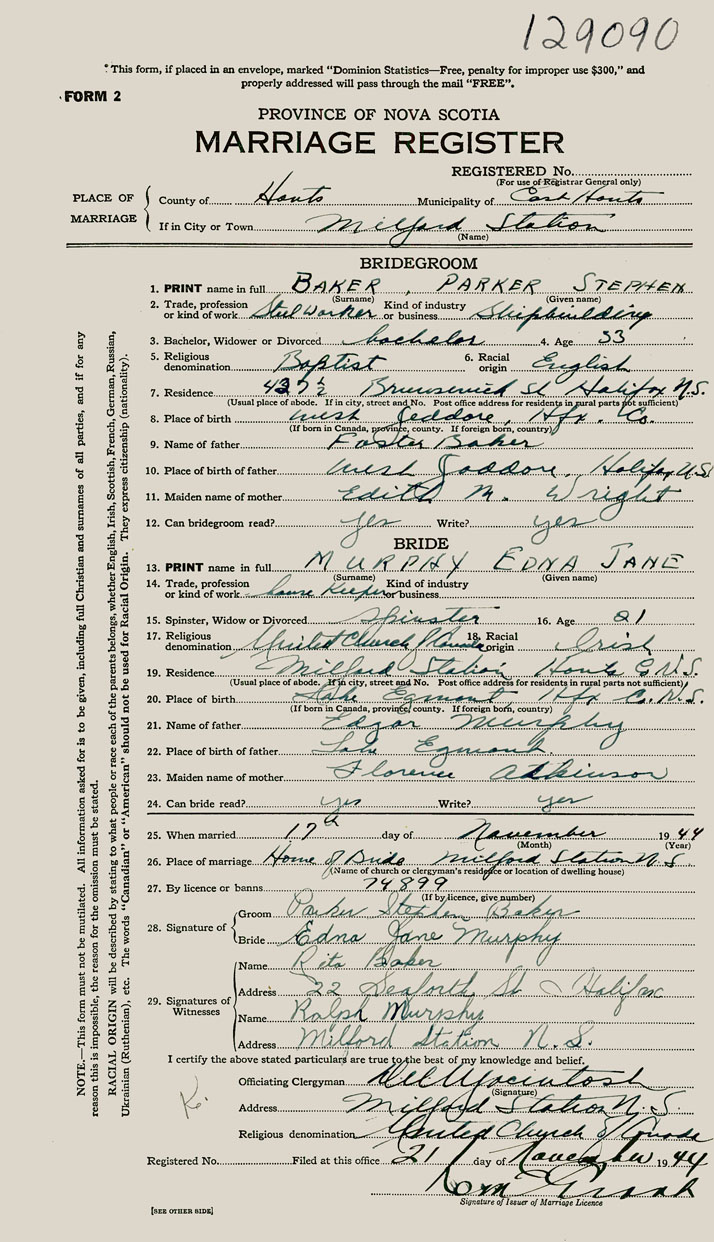 129090
* This form, if placed in an envelope, marked “Dominion Statistics—Free, penalty for improper use $300,” and
properly addressed will pass through the mail “FREE”.
FORM 2
PROVINCE OF NOVA SCOTIA
MARRIAGE REGISTER
REGISTERED No.
(For use of Registrar General only)
PLACE OF MARRIAGE
County of Hants Municipality of East Hants
If in City or Town Milford Station
(Name)
BRIDEGROOM
1. PRINT name in full BAKER, PARKER STEPHEN
(Surname) (Given name)
2. Trade, profession or kind of work Steel Worker Kind of industry or business Shipbuilding
3. Bachelor, Widower or Divorced bachelor 4. Age 33
5. Religious denomination Baptist 6. Racial origin English
7. Residence 437½ Brunswick St Halifax N.S.
(Usual place of abode. If in city, street and No. Post office address for residents in rural parts not sufficient)
8. Place of birth West Jeddore, Hfx. Co.
(If born in Canada, province, county. If foreign born, country)
9. Name of father Foster Baker
10. Place of birth of father West Jeddore, Halifax N.S.
11. Maiden name of mother Edith M. Wright
12. Can bridegroom read? yes Write? yes
BRIDE
13. PRINT name in full MURPHY EDNA JANE
(Surname) (Given name)
14. Trade, profession or kind of work house Keeper Kind of industry or business
15. Spinster, Widow or Divorced Spinster 16. Age 21
17. Religious denomination United Church of Canada 18. Racial origin Irish
19. Residence Milford Station Hants C. N.S.
(Usual place of abode. If in city, street and No. Post office address for residents in rural parts not sufficient)
20. Place of birth Lake Egmont, Hfx Co. N.S.
(If born in Canada, province, county. If foreign born, country)
21. Name of father Edgar Murphy
22. Place of birth of father Lake Egmont.
23. Maiden name of mother Florence Adkinson
24. Can bride read? yes Write? yes
25. When married 17th day of November 1944
(Month) (Year)
26. Place of marriage Home of Bride Milford Station N.S.
(Name of church or clergyman's residence or location of dwelling house)
27. By licence or banns 74899
(If by licence, give number)
28. Signature of
Groom Parker Stephen Baker
Bride Edna Jane Murphy
29. Signatures of Witnesses
Name Rita Baker
Address 22 Seaforth St Halifax
Name Ralph Murphy
Address Milford Station N.S.
I certify the above stated particulars are true to the best of my knowledge and belief.
Officiating Clergyman Macintosh
(Signature)
K.
Address Milford Station N.S.
Religious denomination United Church of Canada
Registered No. Filed at this office 21 day of November 1944
Signature of Issuer of Marriage Licence
[SEE OTHER SIDE]
NOTE.—This form must not be mutilated. All information asked for is to be given, including full Christian and surnames of all parties, and if for any
reason this is impossible, the reason for the omission must be stated.
RACIAL ORIGIN will be described by stating to what people or race each of the parents belongs, whether English, Irish, Scottish, French, German, Russian,
Ukrainian (Ruthenian), etc. The words “Canadian” or “American” should not be used for Racial Origin. They express citizenship (nationality).